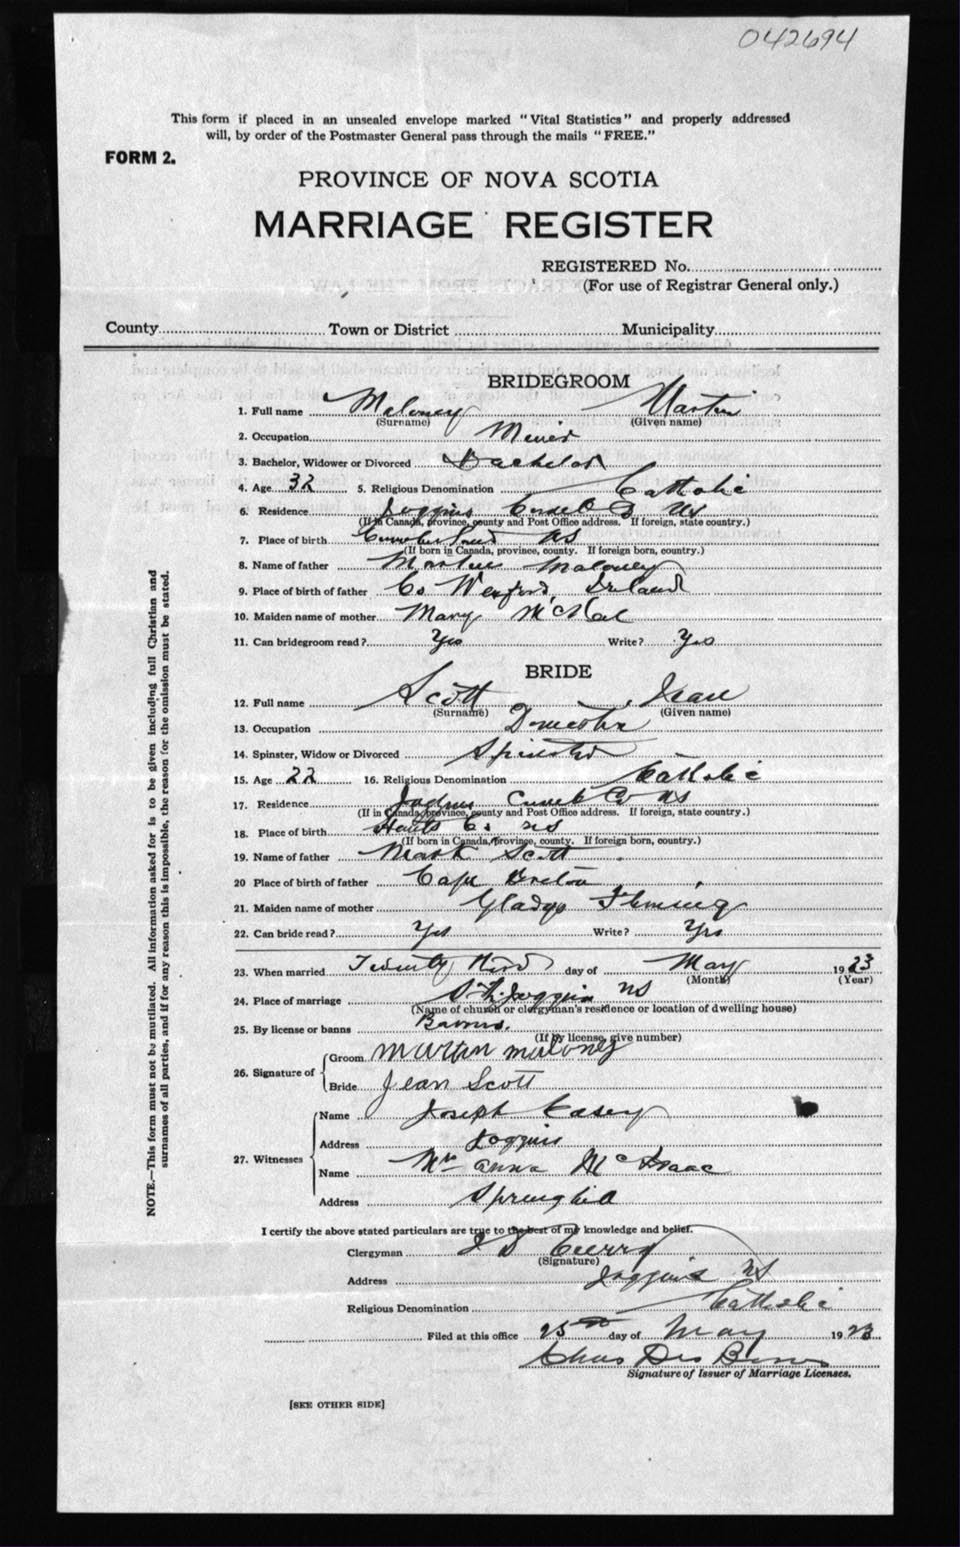 042694
This form if placed in an unsealed envelope marked "Vital Statistics" and properly addressed
will, by order of the Postmaster General pass through the mails "FREE."
FORM 2.
PROVINCE OF NOVA SCOTIA
MARRIAGE REGISTER
REGISTERED No.
(For use of Registrar General only.)
County Town or District Municipality
BRIDEGROOM
1. Full name Maloney Martin
(Surname) (Given name)
2. Occupation Miner
3. Bachelor, Widower or Divorced Bachelor
4. Age 32 5. Religious Denomination Catholic
6. Residence Joggins NS
(If in Canada, province, county and Post Office address. If foreign, state country.)
7. Place of birth Cumberland NS
(If born in Canada, province, county. If foreign born, country.)
8. Name of father Martin Maloney
9. Place of birth of father Co Wexford, Ireland
10. Maiden name of mother Mary
11. Can bridegroom read? Yes Write? Yes
BRIDE
12. Full name Scott, Jean
(Surname) (Given name)
13. Occupation Domestic
14. Spinster, Widow or Divorced Spinster
15. Age 22 16. Religious Denomination Catholic
17. Residence Joggins Co NS
(If in Canada, province, county and Post Office address. If foreign, state country.)
18. Place of birth Hants Co NS
(If born in Canada, province, county. If foreign born, country.)
19. Name of father Mark Scott
20 Place of birth of father Cape Breton
21. Maiden name of mother Gladys Fleming
22. Can bride read? Yes Write? Yes
23. When married Twenty third day of May 1923
(Month) (Year)
24. Place of marriage Joggins NS
(Name of church or clergyman's residence or location of dwelling house)
25. By license or banns Banns.
(If by license, give number)
26. Signature of Groom Martin Maloney
Bride Jean Scott
27. Witnesses Name Joseph Casey
Address Joggins
Name Mrs Anna McIsaac
Address Springhill
I certify the above stated particulars are true to the best of my knowledge and belief.
Clergyman
(Signature)
Address Joggins NS
Religious Denomination Catholic
Filed at this office 25th day of May 1923
Chas Des Barres
Signature of Issuer of Marriage Licenses.
[SEE OTHER SIDE]
NOTE.—This form must not be mutilated. All information asked for is to be given including full Christian and
surnames of all parties, and if for any reason this is impossible, the reason for the omission must be stated.